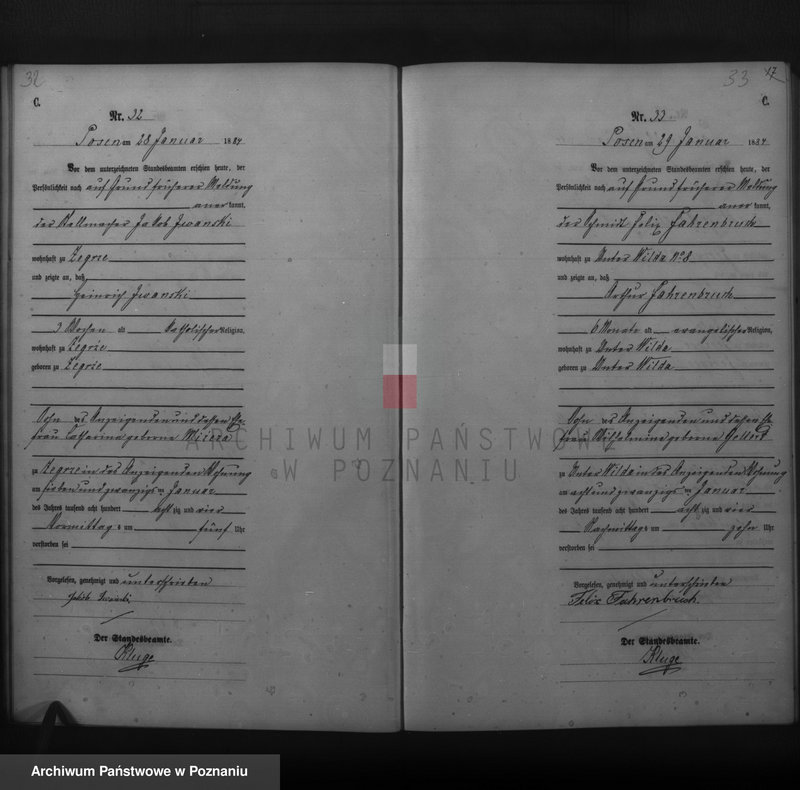 32
C.
Nr. 32
Posen am 28 Januar 1884
Vor dem unterzeichneten Standesbeamten erschien heute, der
Persönlichkeit nach auf Grund früherer Meldung
anerkannt,
der Stellmacher Jakob Iwanski
wohnhaft zu Zegrze
und zeigte an, daß
Heinrich Iwanski
3 Wochen alt katholischer Religion,
wohnhaft zu Zegrze
geboren zu Zegrze
Sohn des Anzeigenden und dessen Ehe-
frau Catharina geborne
zu Zegrze in des Anzeigenden Wohnung
am sieben und zwanzigsten Januar
des Jahres tausend acht hundert achtzig und vier
Vormittags um fünf Uhr
verstorben sei
Vorgelesen, genehmigt und unterschrieben
Jakob Iwanski
Der Standesbeamte.
Kluge
33 17
C.
Nr. 33
Posen am 29 Januar 1884
Vor dem unterzeichneten Standesbeamten erschien heute, der
Persönlichkeit nach auf Grund früherer Meldung
anerkannt,
der Schmidt Felix Fahrenbruch
wohnhaft zu Unter Wilda No 8
und zeigte an, daß
Arthur Fahrenbruch
6 Monate alt evangelischer Religion,
wohnhaft zu Unter Wilda
geboren zu Unter Wilda
Sohn des Anzeigenden und dessen Ehe-
frau Wilhelmine geborne
zu Unter Wilda in des Anzeigenden Wohnung
am acht und zwanzigsten Januar
des Jahres tausend acht hundert achtzig und vier
Nachmittags um zehn Uhr
verstorben sei
Vorgelesen, genehmigt und unterschrieben
Felix Fahrenbruch
Der Standesbeamte.
Kluge
ARCHIWUM PAŃSTWOWE
W POZNANIU
Archiwum Państwowe w Poznaniu